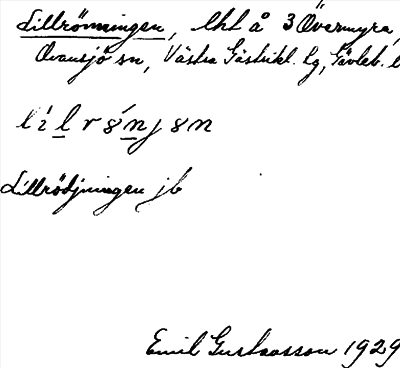 Lillrönningen, lht å 3 Övermyra,
Ovansjö sn, Västra Gästrikl. tg, Gävleb. l
Lillrödjningen jb
Emil Gustavsson 1929